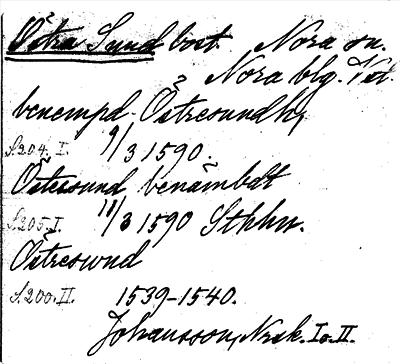 Östra Sund bost. Nora sn.
Nora blg. Vstl.
benempd. Östresundh,
S.204. I. 9/3 1590.
Östersund benämbdt
S.205. I. 11/3 1590 Sthlm.
Östreswnd
S.200. II. 1539-1540.
Johansson, Nrsk. I o. II.